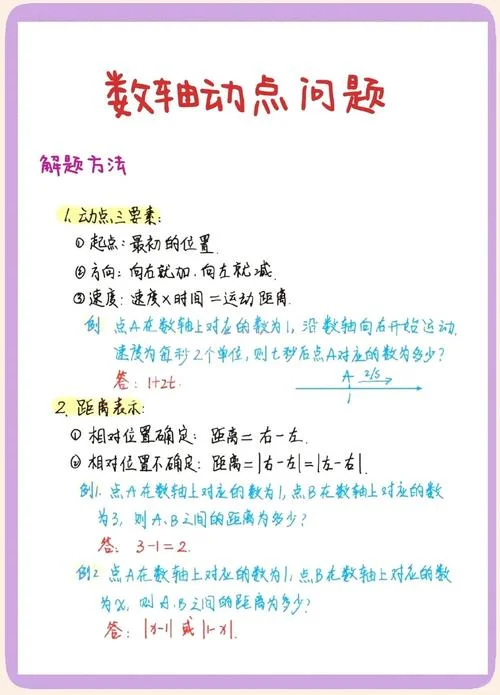 数轴动点问题
解题方法
1. 动点三要素:
① 起点: 最初的位置.
② 方向: 向右就加, 向左就减.
③ 速度: 速度×时间=运动距离.
例 点A在数轴上对应的数为1, 沿数轴向右开始运动.
速度为每秒2个单位, 则t秒后点A对应的数为多少?
答: 1+2t.
A 2/s
1
2. 距离表示:
① 相对位置确定: 距离=右-左.
② 相对位置不确定: 距离=|右-左|=|左-右|.
例1. 点A在数轴上对应的数为1, 点B在数轴上对应的数
为3, 则A、B之间的距离为多少?
答: 3-1=2.
例2 点A在数轴上对应的数为1, 点B在数轴上对应的数
为x, 则A、B之间的距离为多少?
答: |x-1| 或 |1-x|.